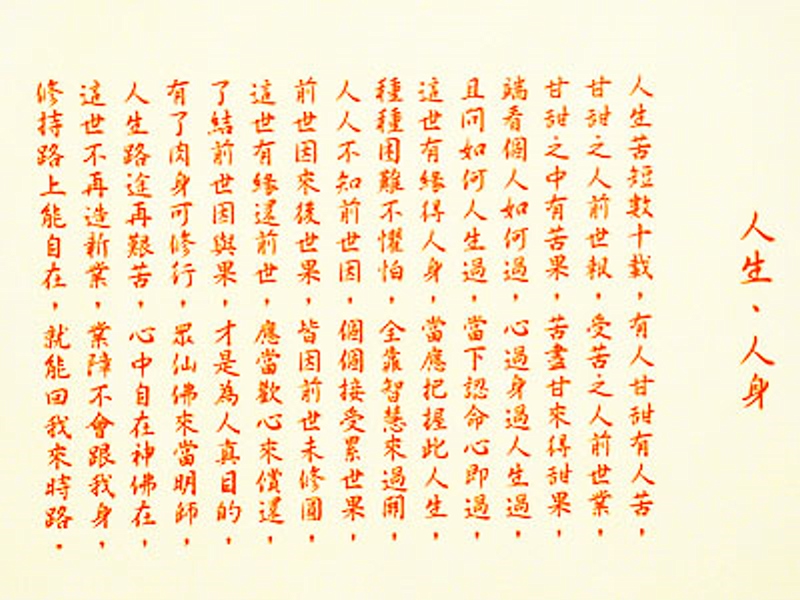 人生、人身
人生苦短數十載，有人甘甜有人苦，
甘甜之人前世報，受苦之人前世業，
甘甜之中有苦果，苦盡甘來得甜果，
端看個人如何過，心過身過人生過，
且問如何人生過，當下認命心即過，
這世有緣得人身，當應把握此人生，
種種困難不懼怕，全靠智慧來過關，
人人不知前世因，個個接受累世果，
前世因來後世果，皆因前世未修圓，
這世有緣還前世，應當歡心來償還，
了結前世因與果，才是為人真目的，
有了肉身可修行，眾仙佛來當明師，
人生路途再艱苦，心中自在神佛在，
這世不再造新業，業障不會跟我身，
修持路上能自在，就能回我來時路。